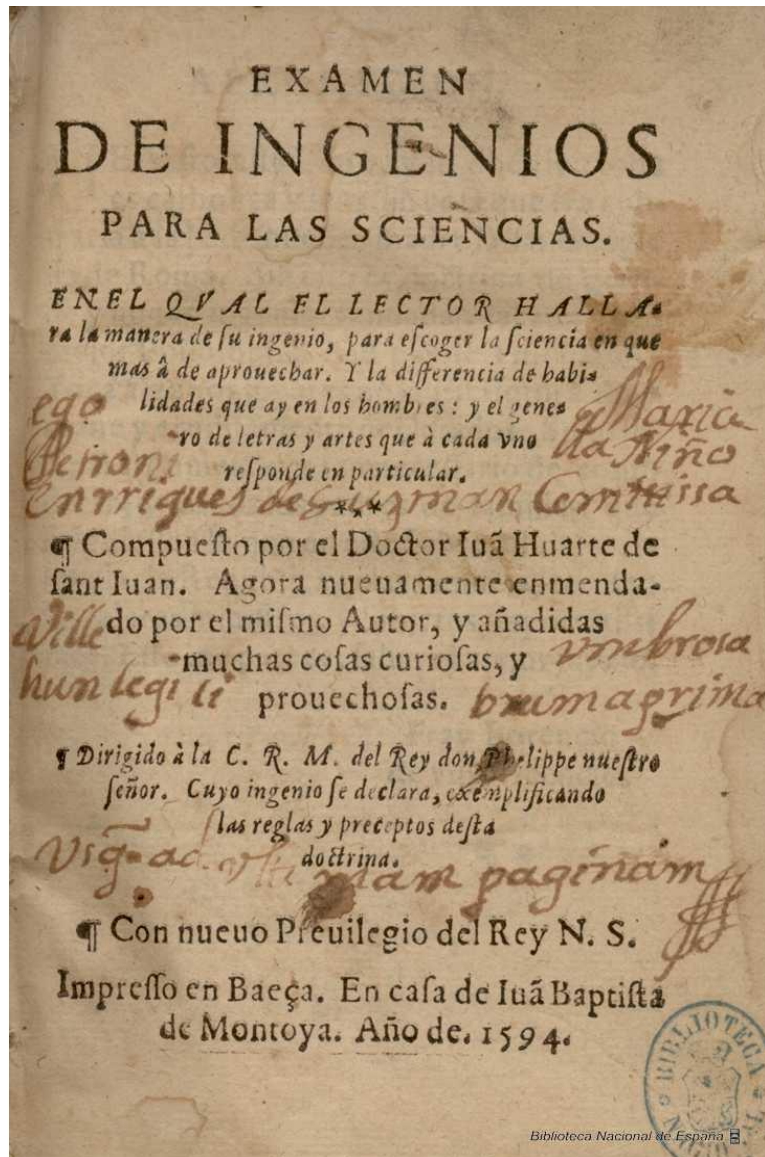 EXAMEN
DE INGENIOS
PARA LAS SCIENCIAS.
EN EL QVAL EL LECTOR HALLA-
ra la manera de ſu ingenio, para eſcoger la ſciencia en que
mas â de aprouechar. Y la differencia de habi-
lidades que ay en los hombres : y el gene-
ro de letras y artes que à cada vno
reſponde en particular.
ego Maria
Petroni lla Niño
Enrriques de Guzman Comitissa
¶ Compueſto por el Doctor Iuã Huarte de
ſant Iuan. Agora nueuamente enmenda-
do por el miſmo Autor, y añadidas
muchas coſas curioſas, y
prouechoſas.
Ville vmbrosa
hun legi li brum a prima
¶ Dirigido à la C. R. M. del Rey don Phelippe nueſtro
ſeñor. Cuyo ingenio ſe declara, exemplificando
las reglas y preceptos deſta
doctrina.
ad vltimam paginam
¶ Con nueuo Preuilegio del Rey N. S.
Impreſſo en Baeça. En caſa de Iuã Baptiſta
de Montoya. Año de. 1594.
BIBLIOTECA
Biblioteca Nacional de España